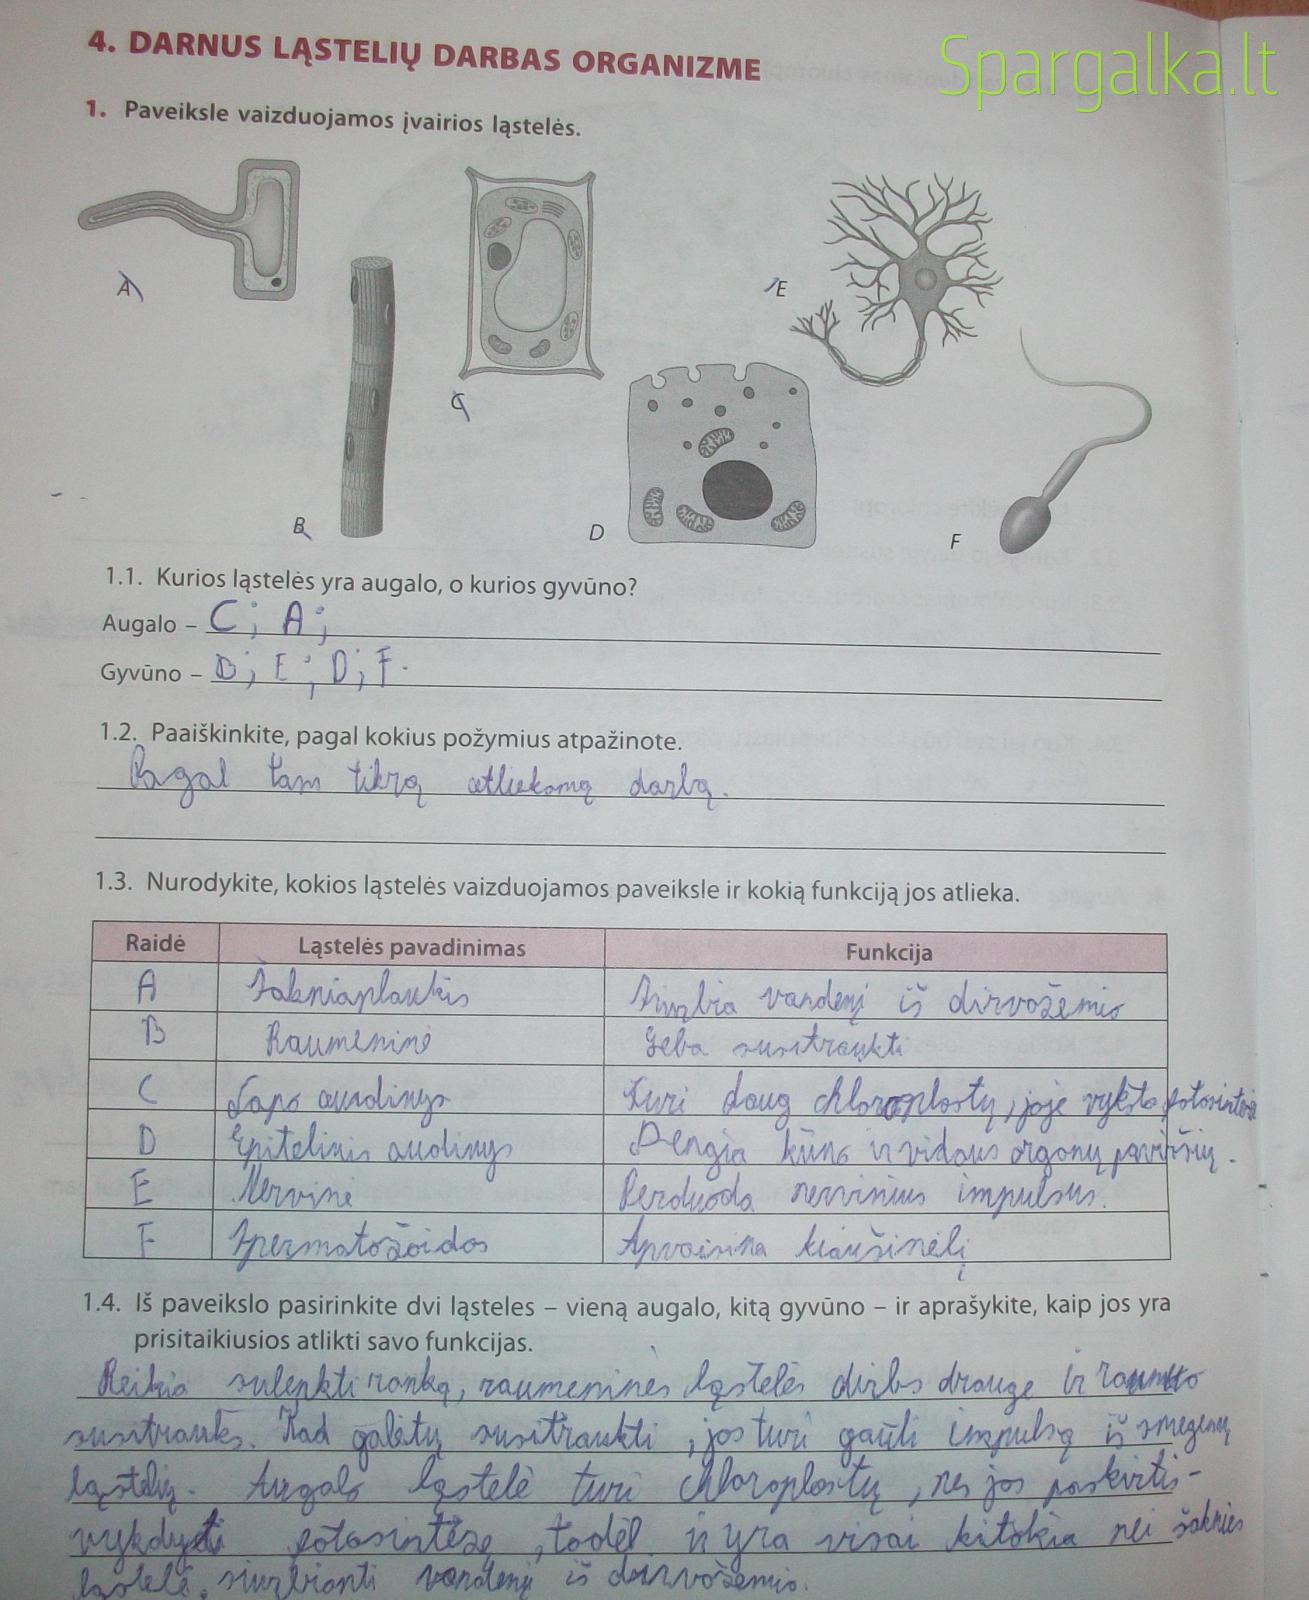 Spargalka.lt
4. DARNUS LĄSTELIŲ DARBAS ORGANIZME
1. Paveiksle vaizduojamos įvairios ląstelės.
A
B
C
D
E
F
1.1. Kurios ląstelės yra augalo, o kurios gyvūno?
Augalo – C; A;
Gyvūno – B; E; D; F.
1.2. Paaiškinkite, pagal kokius požymius atpažinote.
Pagal tam tikrą atliekamą darbą.
1.3. Nurodykite, kokios ląstelės vaizduojamos paveiksle ir kokią funkciją jos atlieka.
Raidė Ląstelės pavadinimas Funkcija
A Šakniaplaukis Siurbia vandenį iš dirvožemio
B Raumeninė Geba susitraukti
C Lapo audinys Turi daug chloroplastų, joje vyksta fotosintezė
D Epitelinis audinys Dengia kūno ir vidaus organų paviršių.
E Nervinė Perduoda nervinius impulsus.
F Spermatozoidas Apvaisina kiaušinėlį
1.4. Iš paveikslo pasirinkite dvi ląsteles – vieną augalo, kitą gyvūno – ir aprašykite, kaip jos yra
prisitaikiusios atlikti savo funkcijas.
Reikia sulenkti ranką, raumeninės ląstelės dirbs drauge ir
susitrauks. Kad galėtų susitraukti, jos turi gauti impulsą iš smegenų
ląstelių. Augalo ląstelė turi chloroplastų, nes jos paskirtis-
vykdyti fotosintėzę, todėl ir yra visai kitokia nei šaknies
ląstelė, siurbianti vandenį iš dirvožemio.